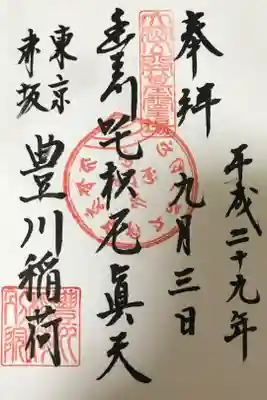 平成二十九年
奉拝 九月三日
豊川吒枳尼眞天
東京
赤坂
豊川稲荷